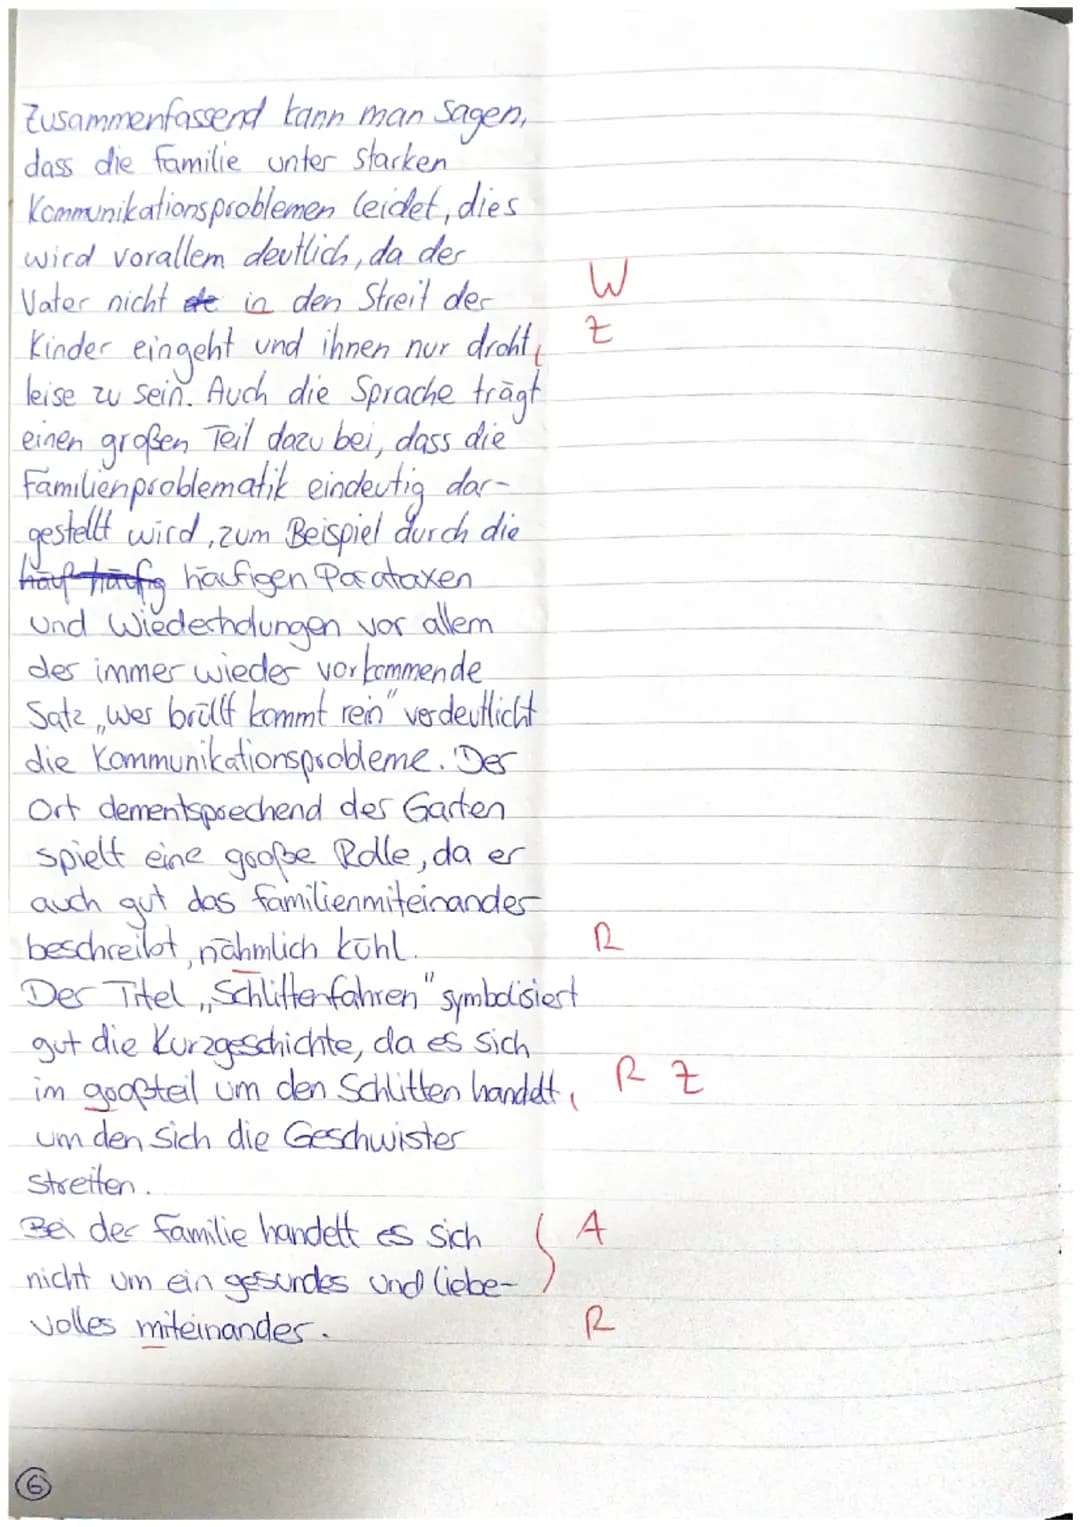 Zusammenfassend kann man sagen,
dass die Familie unter starken
Kommunikationsproblemen leidet, dies
wird vorallem deutlich, da der
Vater nicht in den Streit der W
Kinder eingeht und ihnen nur droht, Z
leise zu sein. Auch die Sprache trägt
einen großen Teil dazu bei, dass die
Familienproblematik eindeutig dar-
gestellt wird, zum Beispiel durch die
häuf häufig häufigen Parataxen
und Wiederholungen vor allem
der immer wieder vorkommende
Satz „wer brüllt kommt rein" verdeutlicht
die Kommunikationsprobleme. Der
Ort dementsprechend der Garten
spielt eine große Rolle, da er
auch gut das Familienmiteinander
beschreibt, nähmlich kühl. R
Der Titel „Schlittenfahren" symbolisiert
gut die Kurzgeschichte, da es sich
im großteil um den Schlitten handelt, R Z
um den sich die Geschwister
streiten.
Bei der Familie handelt es sich A
nicht um ein gesundes und liebe-
volles miteinander. R
6